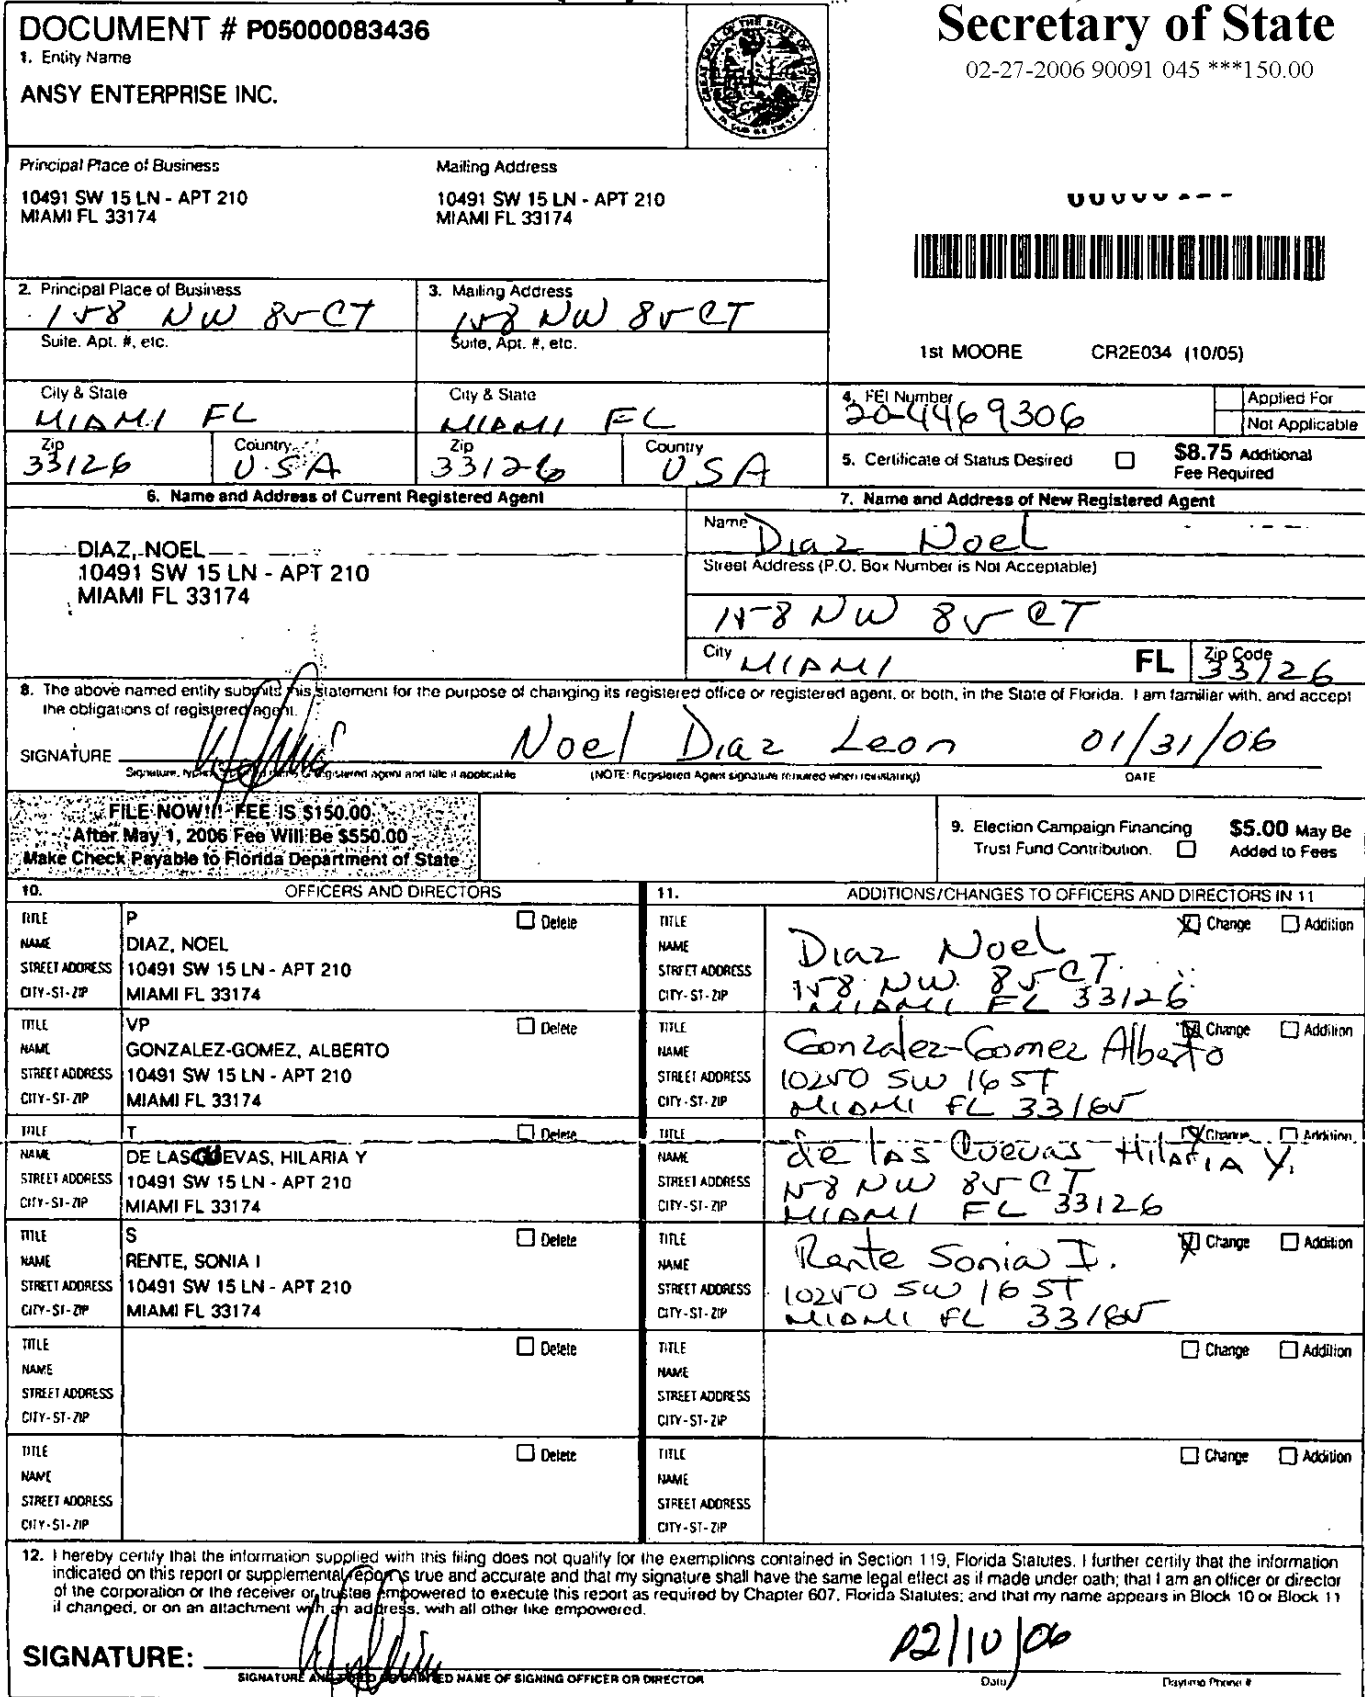 DOCUMENT # P05000083436
1. Entity Name
ANSY ENTERPRISE INC.
Secretary of State
02-27-2006 90091 045 ***150.00
Principal Place of Business
10491 SW 15 LN - APT 210
MIAMI FL 33174
Mailing Address
10491 SW 15 LN - APT 210
MIAMI FL 33174
2. Principal Place of Business
158 NW 85 CT
Suite, Apt. #, etc.
City & State
MIAMI FL
Zip
33126
Country
U.S.A
3. Mailing Address
158 NW 85 CT
Suite, Apt. #, etc.
City & State
MIAMI FL
Zip
33126
Country
USA
1st MOORE CR2E034 (10/05)
4. FEI Number
20-4469306
Applied For
Not Applicable
5. Certificate of Status Desired
$8.75 Additional
Fee Required
6. Name and Address of Current Registered Agent
DIAZ, NOEL
10491 SW 15 LN - APT 210
MIAMI FL 33174
7. Name and Address of New Registered Agent
Name
Diaz Noel
Street Address (P.O. Box Number is Not Acceptable)
158 NW 85 CT
City
MIAMI
FL
Zip Code
33126
8. The above named entity submits this statement for the purpose of changing its registered office or registered agent, or both, in the State of Florida. I am familiar with, and accept
the obligations of registered agent.
SIGNATURE
Noel Diaz Leon 01/31/06
Signature, registered agent and title if applicable
(NOTE: Registered Agent signature required when reinstating)
DATE
FILE NOW!!! FEE IS $150.00
After May 1, 2006 Fee Will Be $550.00
Make Check Payable to Florida Department of State
9. Election Campaign Financing
Trust Fund Contribution.
$5.00 May Be
Added to Fees
10. OFFICERS AND DIRECTORS
11. ADDITIONS/CHANGES TO OFFICERS AND DIRECTORS IN 11
TITLE P Delete
NAME DIAZ, NOEL
STREET ADDRESS 10491 SW 15 LN - APT 210
CITY-ST-ZIP MIAMI FL 33174
TITLE Change Addition
NAME Diaz Noel
STREET ADDRESS 158 NW 85 CT.
CITY-ST-ZIP MIAMI FL 33126
TITLE VP Delete
NAME GONZALEZ-GOMEZ, ALBERTO
STREET ADDRESS 10491 SW 15 LN - APT 210
CITY-ST-ZIP MIAMI FL 33174
TITLE Change Addition
NAME Gonzalez-Gomez Alberto
STREET ADDRESS 10250 SW 16 ST
CITY-ST-ZIP MIAMI FL 33165
TITLE T Delete
NAME DE LAS CUEVAS, HILARIA Y
STREET ADDRESS 10491 SW 15 LN - APT 210
CITY-ST-ZIP MIAMI FL 33174
TITLE Change Addition
NAME de las Cuevas Hilaria Y.
STREET ADDRESS 158 NW 85 CT
CITY-ST-ZIP MIAMI FL 33126
TITLE S Delete
NAME RENTE, SONIA I
STREET ADDRESS 10491 SW 15 LN - APT 210
CITY-ST-ZIP MIAMI FL 33174
TITLE Change Addition
NAME Rente Sonia I.
STREET ADDRESS 10250 SW 16 ST
CITY-ST-ZIP MIAMI FL 33165
TITLE Delete
NAME
STREET ADDRESS
CITY-ST-ZIP
TITLE Change Addition
NAME
STREET ADDRESS
CITY-ST-ZIP
TITLE Delete
NAME
STREET ADDRESS
CITY-ST-ZIP
TITLE Change Addition
NAME
STREET ADDRESS
CITY-ST-ZIP
12. I hereby certify that the information supplied with this filing does not qualify for the exemptions contained in Section 119, Florida Statutes. I further certify that the information
indicated on this report or supplemental report is true and accurate and that my signature shall have the same legal effect as if made under oath; that I am an officer or director
of the corporation or the receiver or trustee empowered to execute this report as required by Chapter 607, Florida Statutes; and that my name appears in Block 10 or Block 11
if changed, or on an attachment with an address, with all other like empowered.
SIGNATURE:
02/10/06
SIGNATURE AND TYPED OR PRINTED NAME OF SIGNING OFFICER OR DIRECTOR
Date
Daytime Phone #